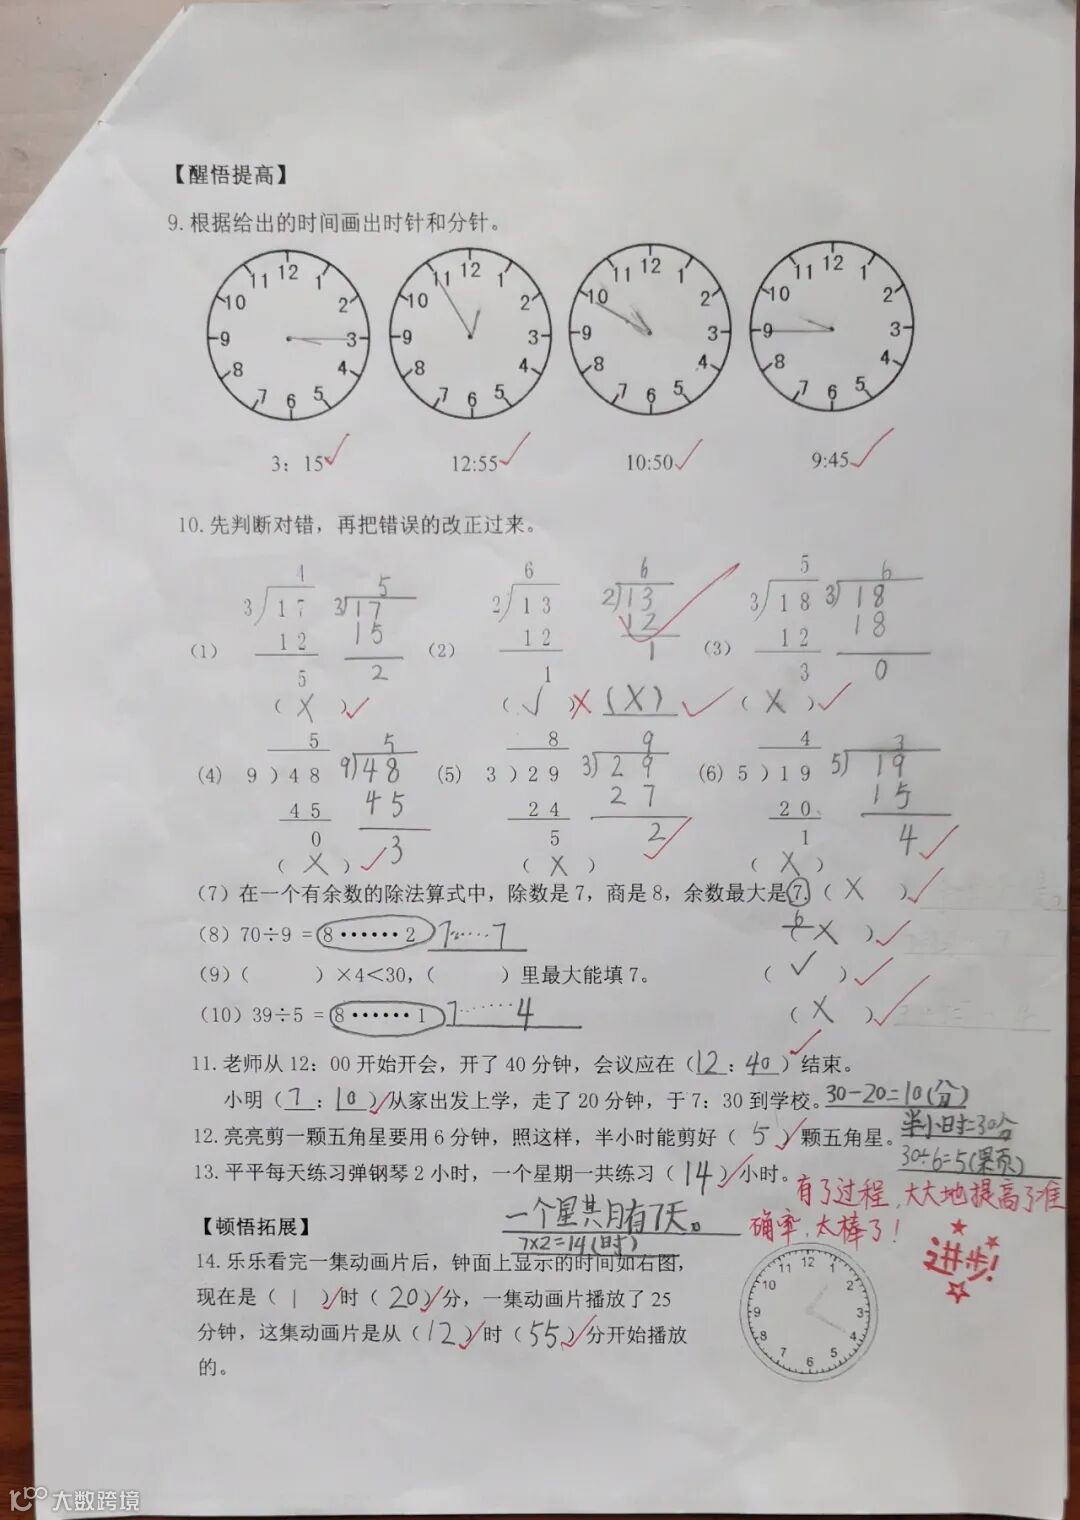 【醒悟提高】
9.根据给出的时间画出时针和分针。
12 1 2 3 4 5 6 7 8 9 10 11
12 1 2 3 4 5 6 7 8 9 10 11
12 1 2 3 4 5 6 7 8 9 10 11
12 1 2 3 4 5 6 7 8 9 10 11
3：15 12:55 10:50 9:45
10.先判断对错，再把错误的改正过来。
4 5 6 6 5 6
3 17 3 17 2 13 2 13 3 18 3 18
(1) 12 15 (2) 12 12 (3) 12 18
5 2 1 1 3 0
( X ) ( √ ) (X) ( X )
5 5 8 9 4 3
(4) 9 ) 48 9)48 (5) 3 ) 29 3)29 (6) 5 ) 19 5) 19
45 45 24 27 20 15
0 3 5 2 1 4
( X ) ( X ) ( X )
（7）在一个有余数的除法算式中，除数是7，商是8，余数最大是7.（ X ）
6
（8）70÷9 = 8 ······ 2 7······7 （ X ）
（9）（ ）×4＜30，（ ）里最大能填7。 （ √ ）
（10）39÷5 = 8 ······ 1 7······4 （ X ）
11.老师从12：00开始开会，开了40分钟，会议应在（12：40）结束。
小明（7：10）从家出发上学，走了20分钟，于7：30到学校。30-20=10(分)
12.亮亮剪一颗五角星要用6分钟，照这样，半小时能剪好（ 5 ）颗五角星。半小时=30分
30÷6=5(颗)
13.平平每天练习弹钢琴2小时，一个星期一共练习（14）小时。
有了过程，大大地提高了准
确率，太棒了！
进步！
【顿悟拓展】
一个星期有7天。
7x2=14(时)
14.乐乐看完一集动画片后，钟面上显示的时间如右图，
现在是（ 1 ）时（20）分，一集动画片播放了25
分钟，这集动画片是从（12）时（55）分开始播放
的。
12 1 2 3 4 5 6 7 8 9 10 11
大数跨境